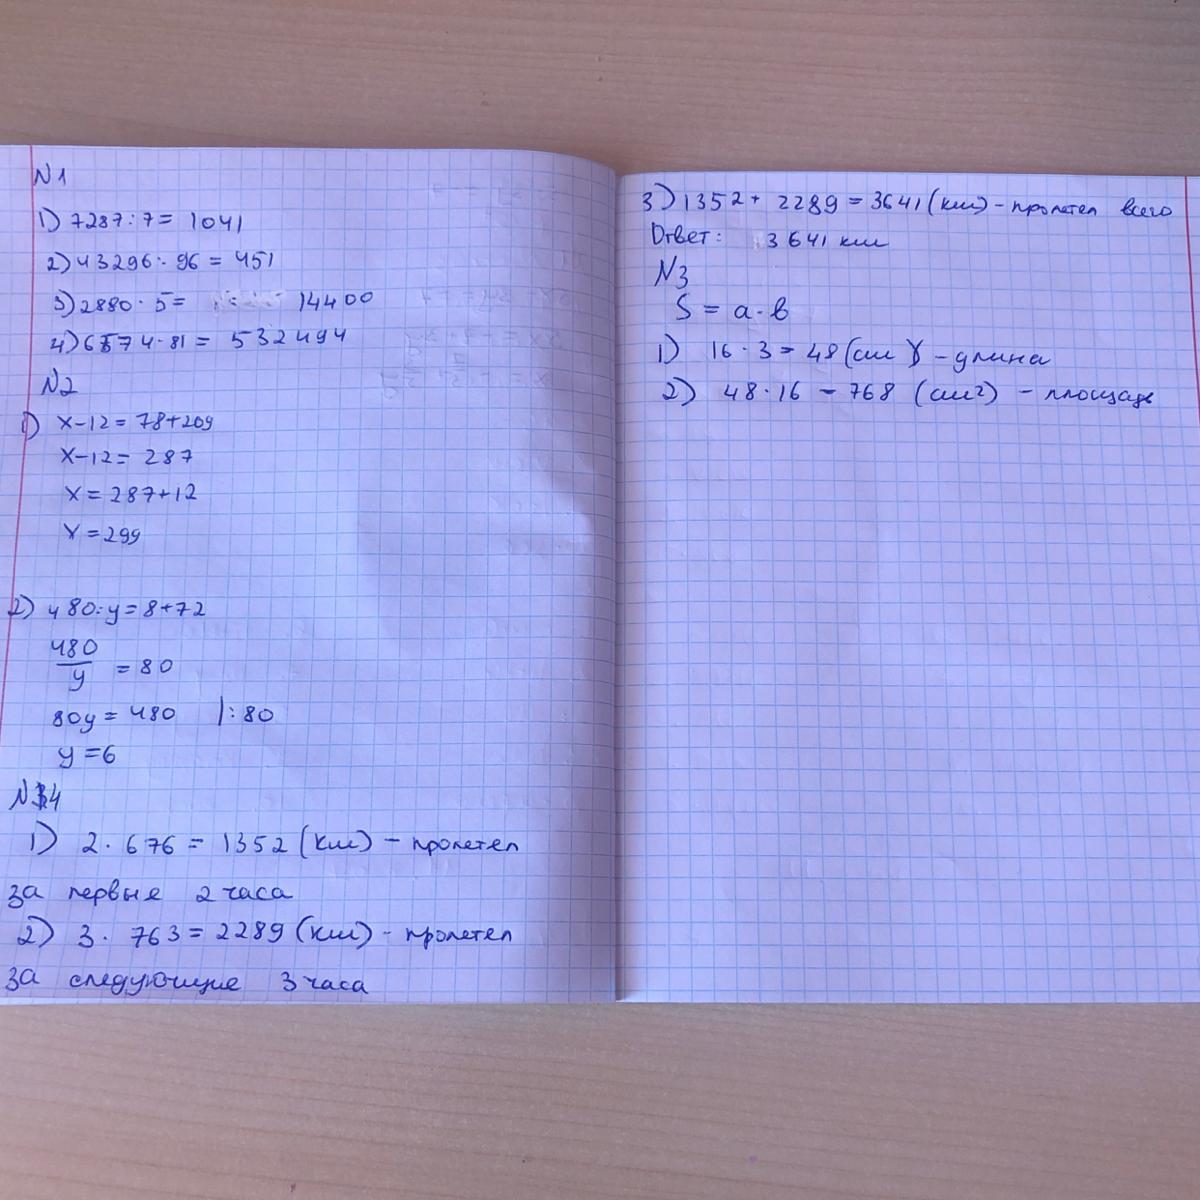 N1
1) 7287:7= 1041
2) 43296:96 = 451
3) 2880·5= 14400
4) 6574·81 = 532494
N2
1) x-12=78+209
x-12= 287
x=287+12
x=299
2) 480:y=8+72
480
y = 80
80y=480 |:80
y=6
N4
1) 2·676=1352 (км) - пролетел
за первые 2 часа
2) 3·763=2289 (км) - пролетел
за следующие 3 часа
3) 1352+2289=3641 (км) - пролетел всего
Ответ: 3641 км
N3
S = a·b
1) 16·3=48 (см) - длина
2) 48·16=768 (см²) - площадь